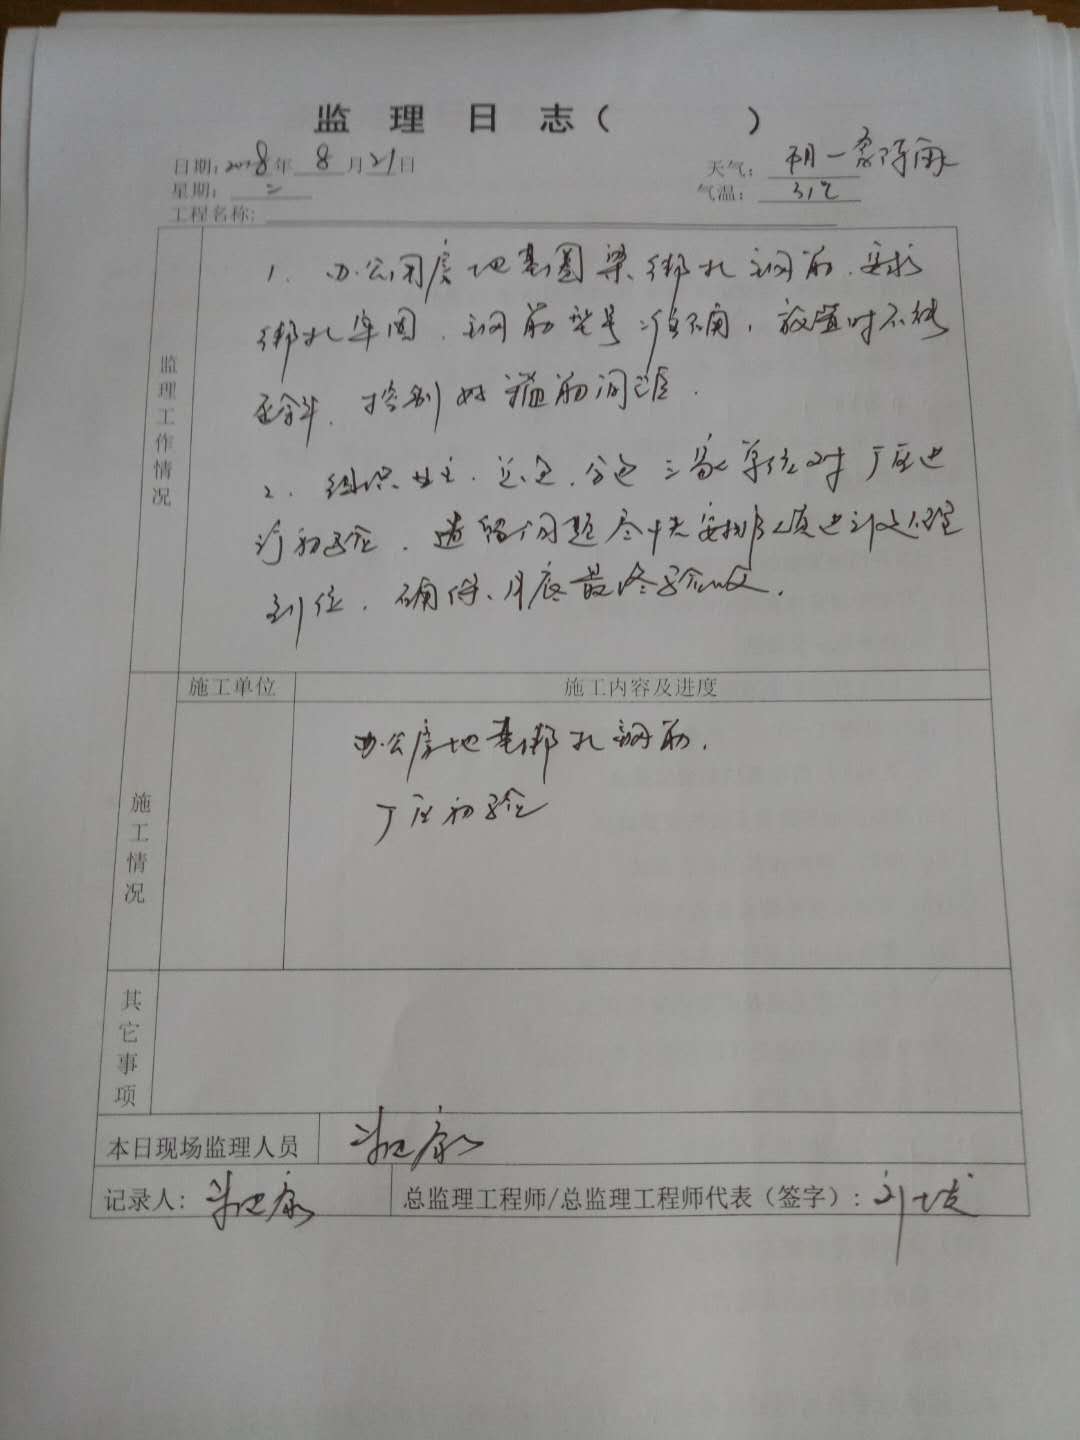 监 理 日 志 (      )
日期: 2018年 8 月 21日 天气: 阴一雾阵雨
星期: 二 气温: 31℃
工程名称:
监理工作情况
1. 办公用房地基圈梁绑扎钢筋,要求
绑扎牢固,钢筋型号准确,放置时不能
歪斜,控制好箍筋间距.
2. 组织业主.总包.分包三家单位对厂区进
行初验,遗留问题尽快安排人员进行处理
到位,确保月底最终验收.
施工情况
施工单位 施工内容及进度
办公房地基绑扎钢筋.
厂区初验
其它事项
本日现场监理人员
记录人: 总监理工程师/总监理工程师代表(签字):